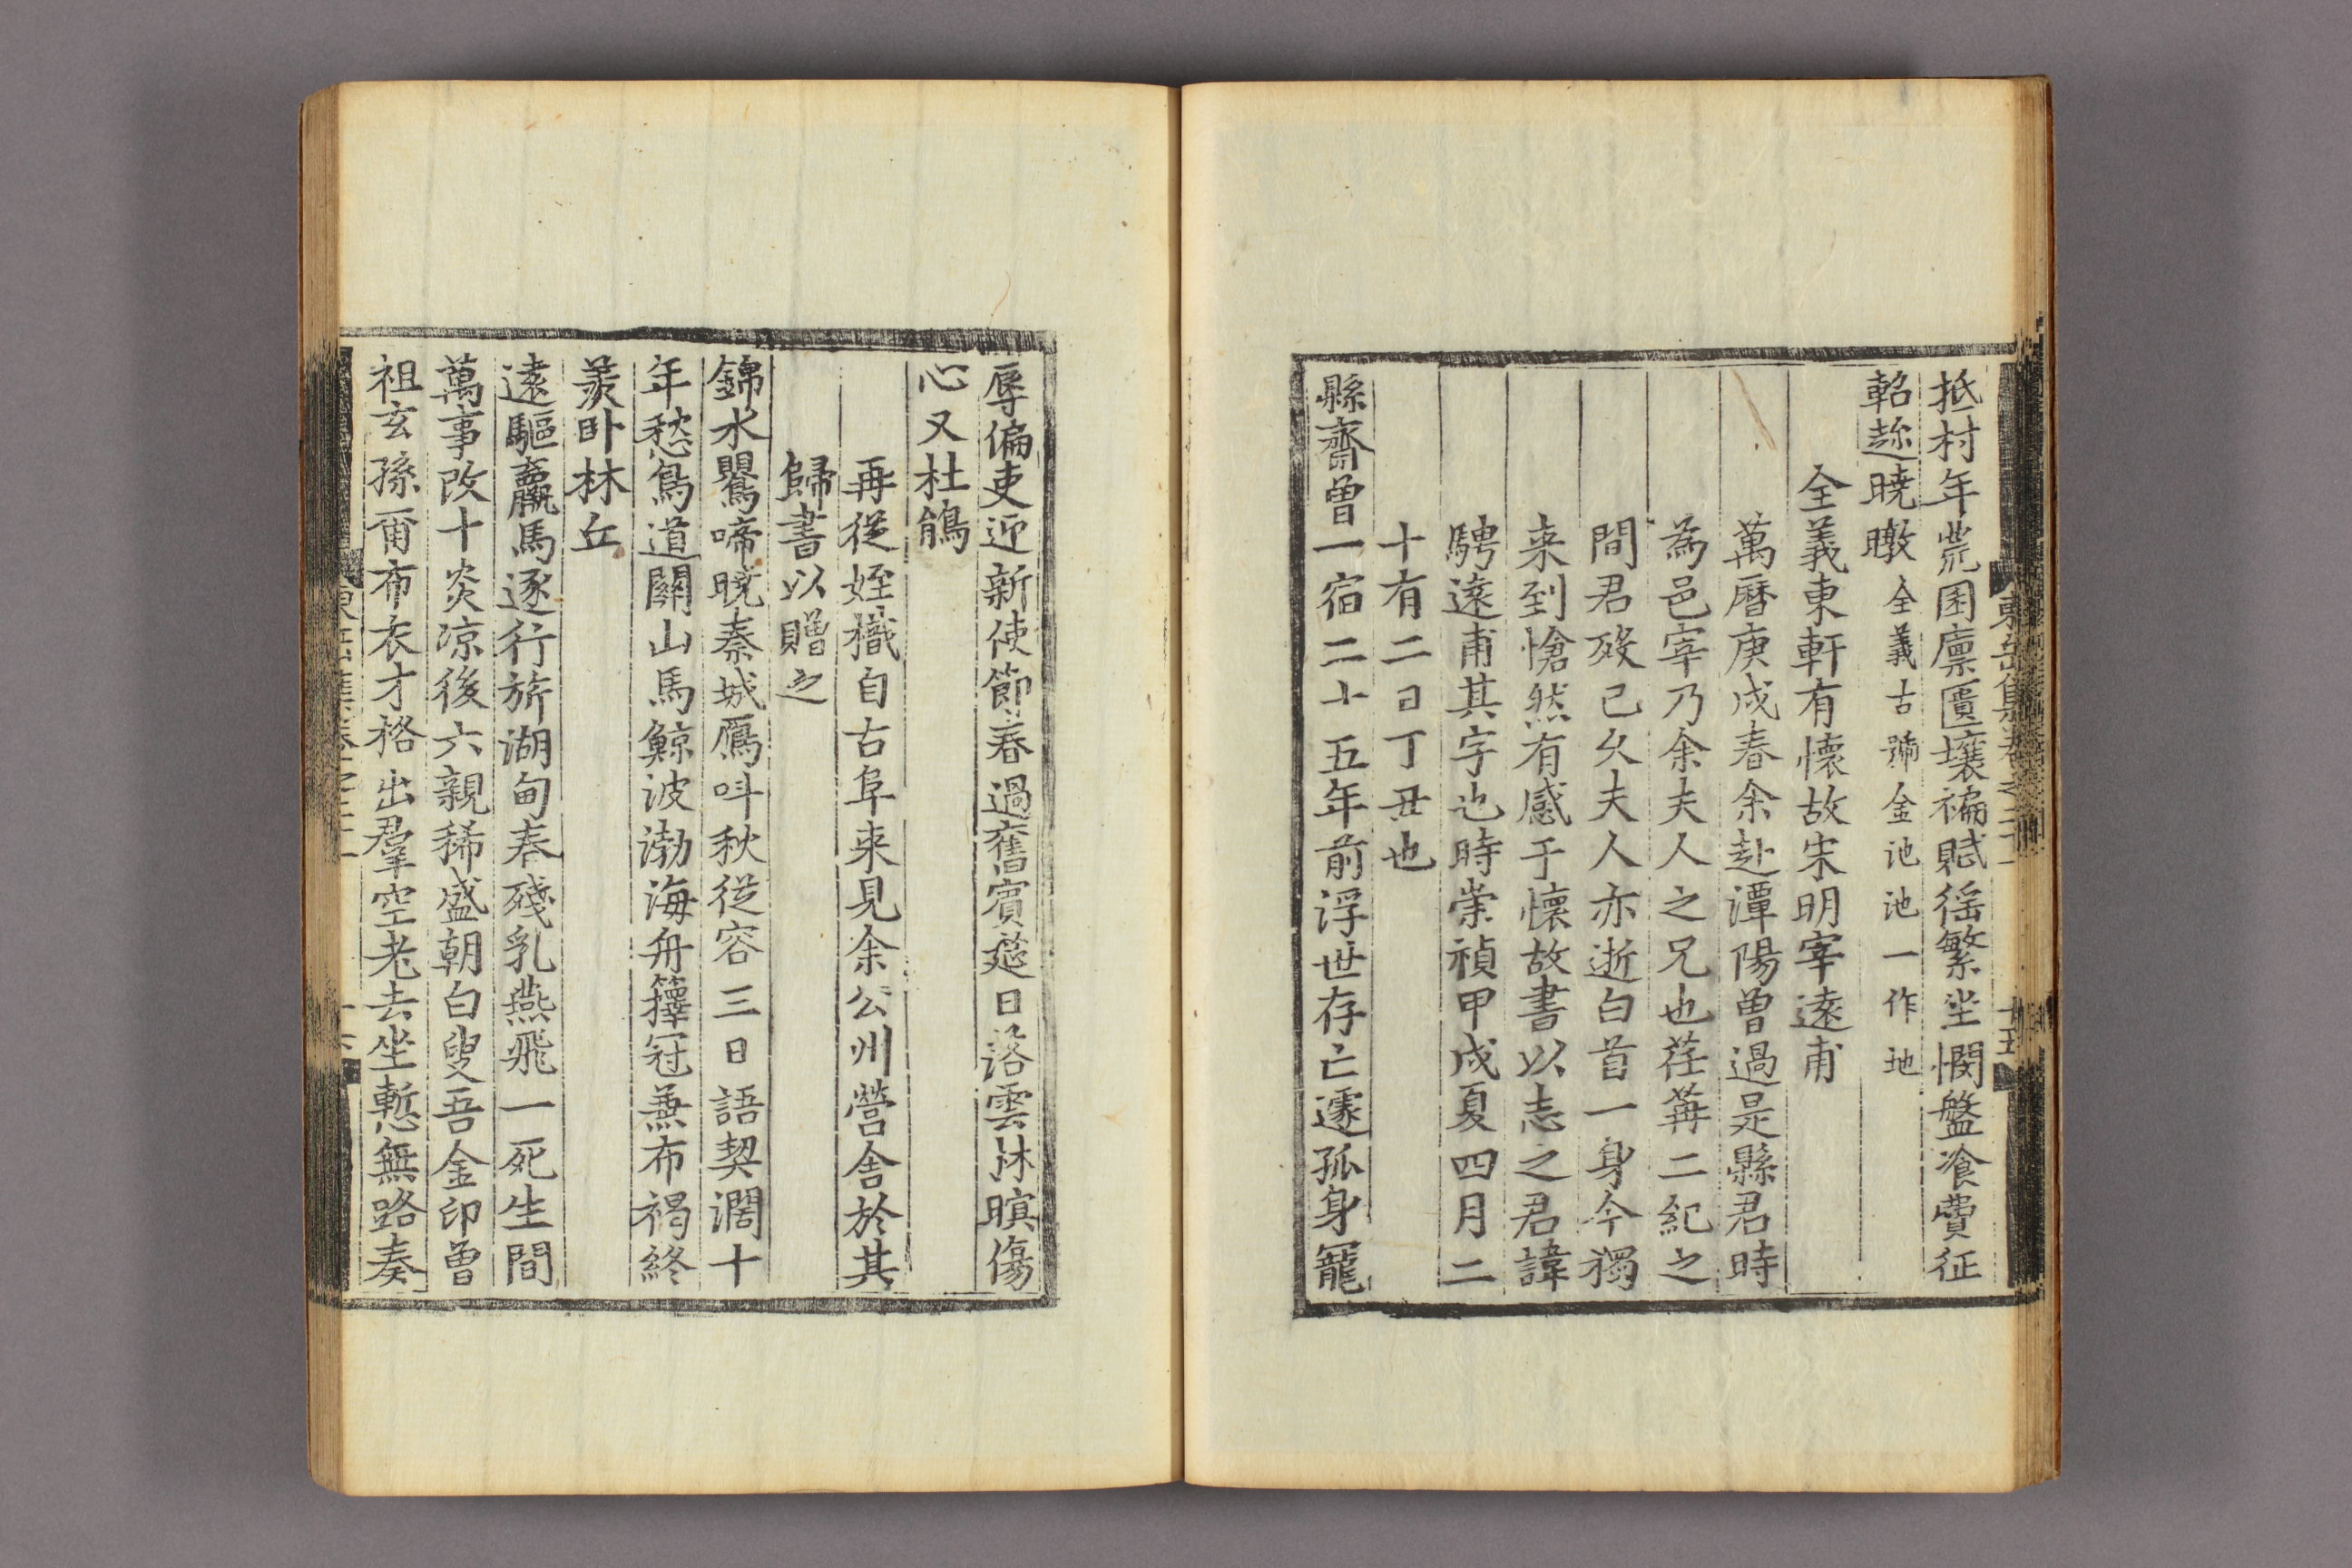 東岳集卷之二十一 十五
抵村年荒困廩匱壤褊賦徭繁坐憫盤飡費征
軺趂曉暾全義古號金池池一作地
全義東軒有懷故宋明宰遠甫
萬曆庚戌春余赴潭陽曾過是縣君時
為邑宰乃余夫人之兄也荏苒二紀之
間君歿已久夫人亦逝白首一身今獨
来到愴然有感于懷故書以志之君諱
騁遠甫其字也時崇禎甲戌夏四月二
十有二日丁丑也
縣齋曾一宿二十五年前浮世存亡遽孤身寵
辱偏吏迎新使節春過舊賓筵日落雲林暝傷
心又杜鵑
再從姪檝自古阜来見余公州營舍於其
歸書以贈之
錦水鸎啼晩秦城鴈呌秋從容三日語契濶十
年愁鳥道關山馬鯨波渤海舟籜冠兼布褐終
羨卧林丘
遠驅羸馬逐行旂湖甸春殘乳燕飛一死生間
萬事改十炎凉後六親稀盛朝白叟吾金印曽
祖玄孫爾布衣才格出羣空老去坐慙無路奏